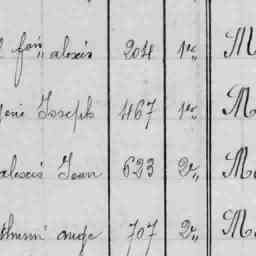 alexis 204 1re M
Joseph 467 1re M
alexis Jean 623 2e M
ange 707 2e M